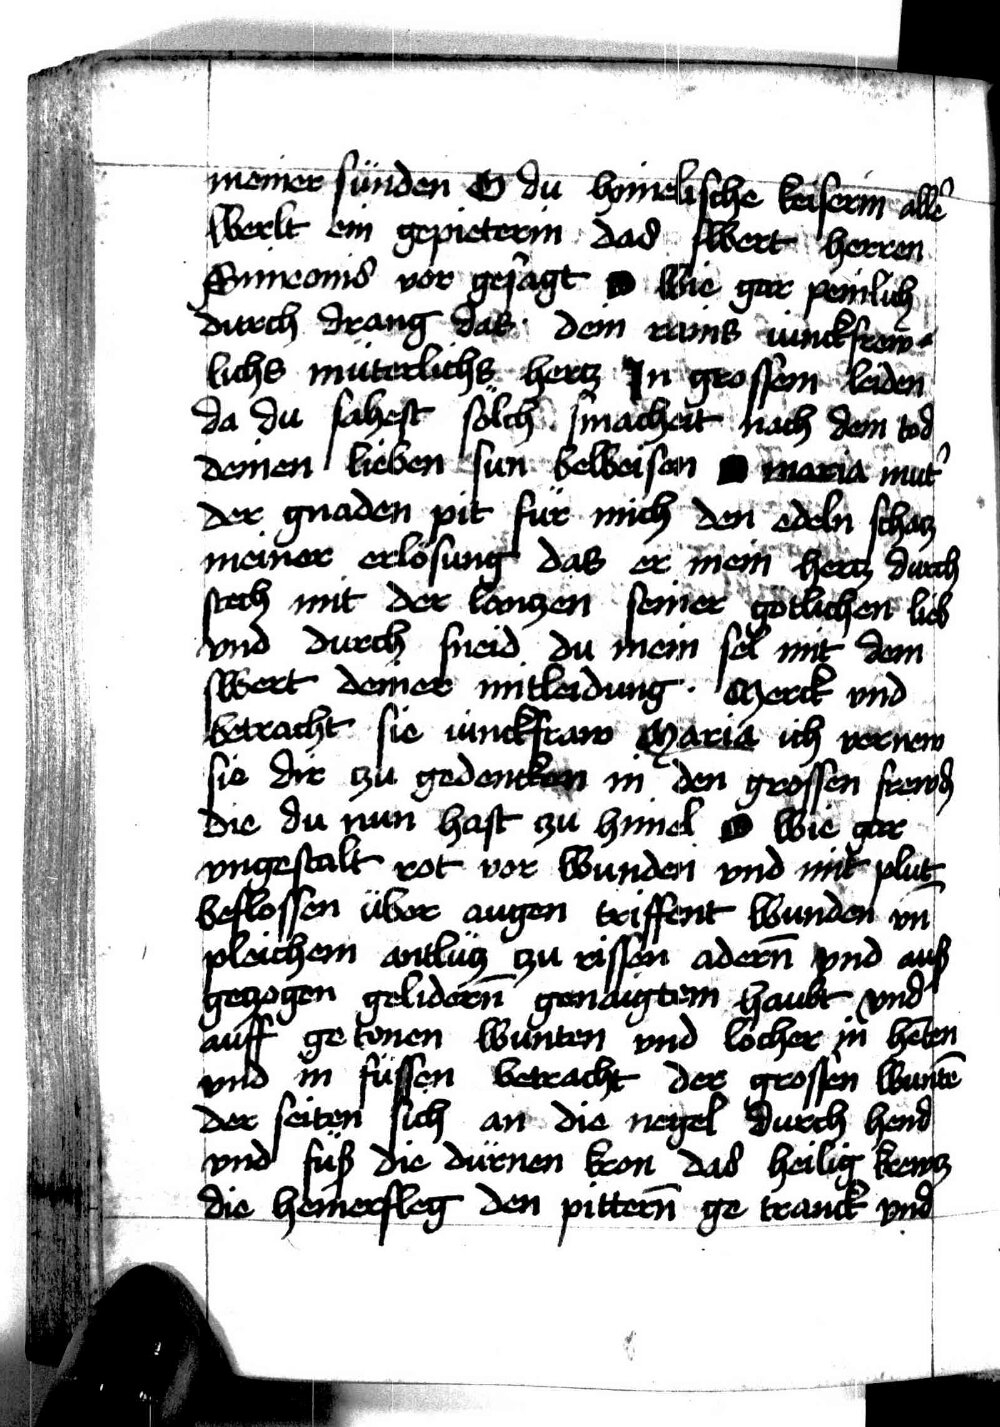 meiner sünden O du himelische keiserin alle᷑
werlt ein gepieterin das swert herren
Simeonis vor gesagt O wie gar peinlich
durch drang das dein rains iunckfrew-
lichs müterlichs hertz In grossem leiden
da du sahest sölch smacheit nach dem tod
deinen lieben sun beweisen O maria mut᷑
der gnaden pit für mich den edeln schatz
meiner erlösung das er mein hertz durch
stech mit der lantzen seiner götlichen lieb
vnd durch sneid du mein sel mit dem
swert deiner mitleidung · Merck vnd
betracht sie iunckfraw Maria ich vernew
sie dir tzu gedencken in den grossen frewd
die du nun hast zu himel O wie gar
vngestalt rot vor wunden vnd mit plut
beflossen über augen triffent wunden vn̄
pleichem antlütz tzu rissen adern̄ vnd auß
getzogen gelidern̄ genaigtem haubt vnd
auff getonen wunten vnd löcher in hēten
vnd in füssen betracht der grossen wuntē
der seiten sich an die negel durch hend
vnd füß die dürnen kron das heilig krewtz
die hemersleg den pittern̄ ge tranck vnd